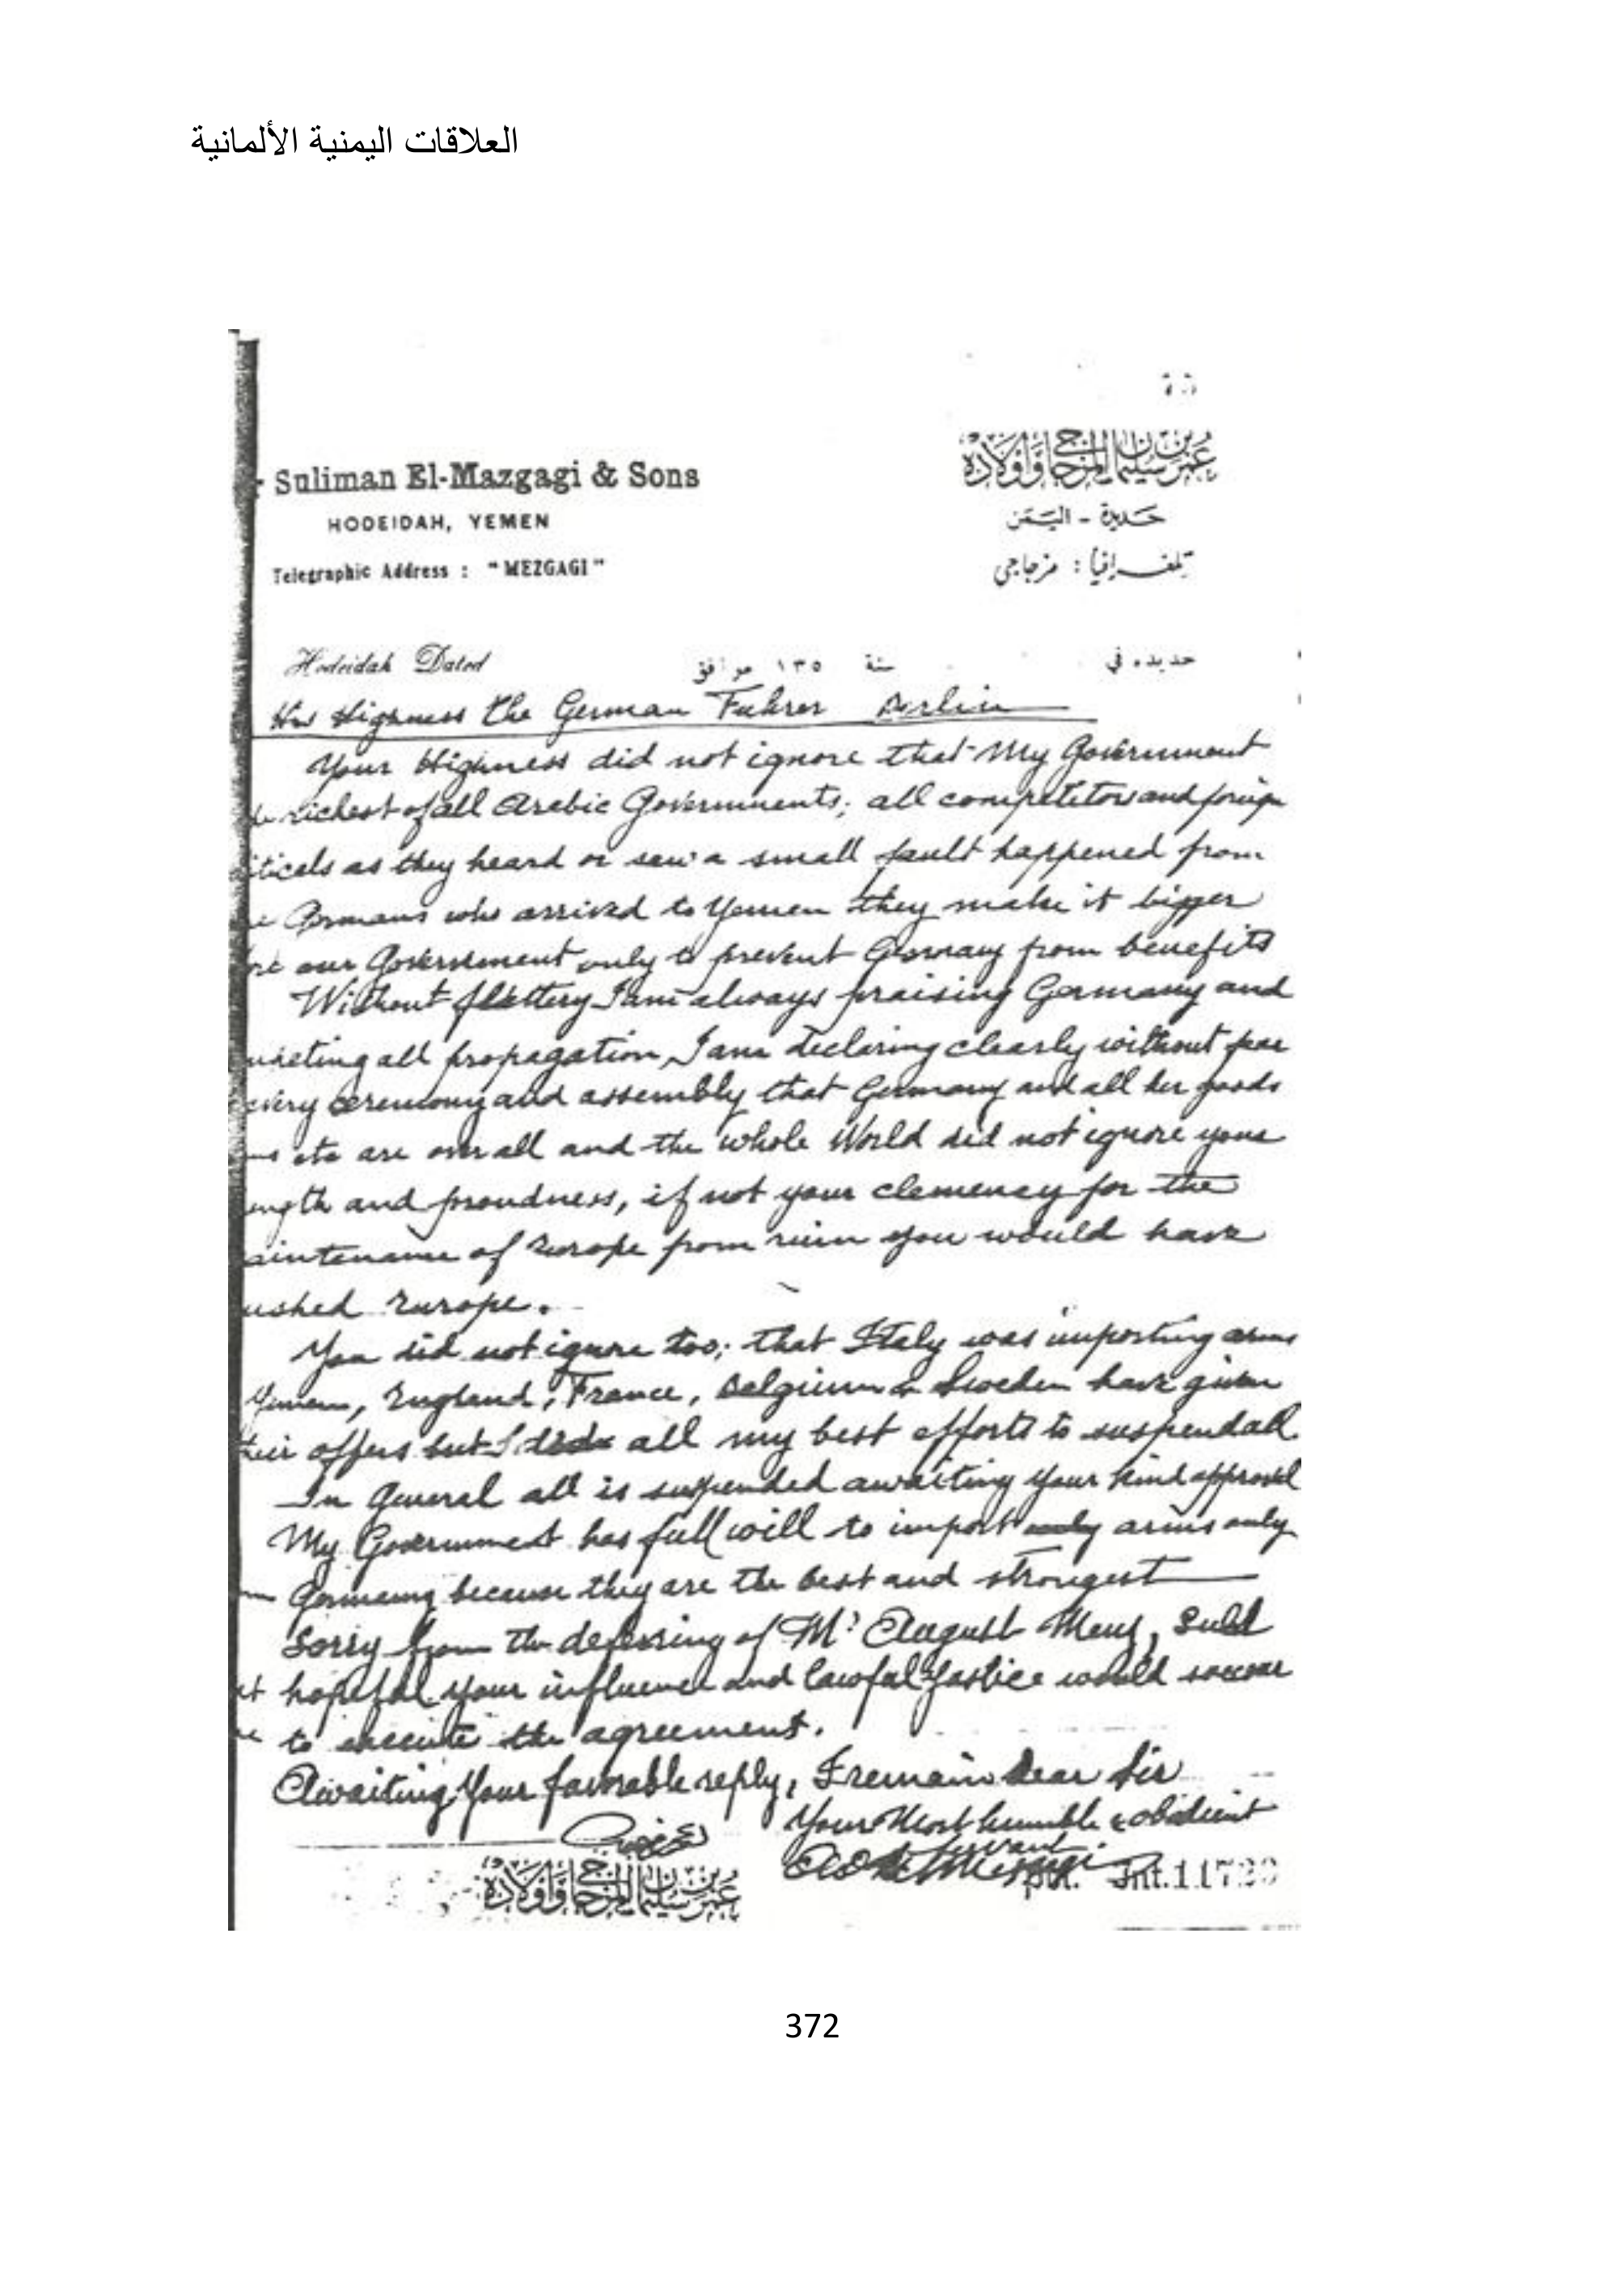 العلاقات اليمنية الألمانية
Suliman El-Mazgagi & Sons
عمر بن سليمان المزجاجي وأولاده
HODEIDAH, YEMEN
حديدة - اليمن
Telegraphic Address : "MEZGAGI"
تلغرافيا : مزجاجي
Hodeidah Dated
حديده في سنة ١٣٥ موافق
His Highness the German Fuhrer Berlin
Your Highness did not ignore that My Government
richest of all Arabic Governments; all competitors and foreign
iticals as they heard or saw a small fault happened from
Germans who arrived to Yemen they make it bigger
our Government only to prevent Germany from benefits
Without flattery I am always praising Germany and
all propagation, I am declaring clearly without fear
every ceremony and assembly that Germany and all her goods
etc are over all and the whole World did not ignore your
ength and proudness, if not your clemency for the
aintenance of Europe from ruin you would have
ushed Europe.
You did not ignore too; that Italy was importing arms
Yemen, England, France, Belgium & Sweden have given
their offers but I did all my best efforts to suspend all
In General all is suspended awaiting your kind approval
My Government has full will to import only arms only
Germany because they are the best and strongest
Sorry from the deferring of Mr August
hopeful your influence and lawful Justice would
to execute the agreement.
Awaiting Your favorable reply, I remain Dear Sir
Your Most humble & obedient
servant
عمر بن سليمان المزجاجي وأولاده
372